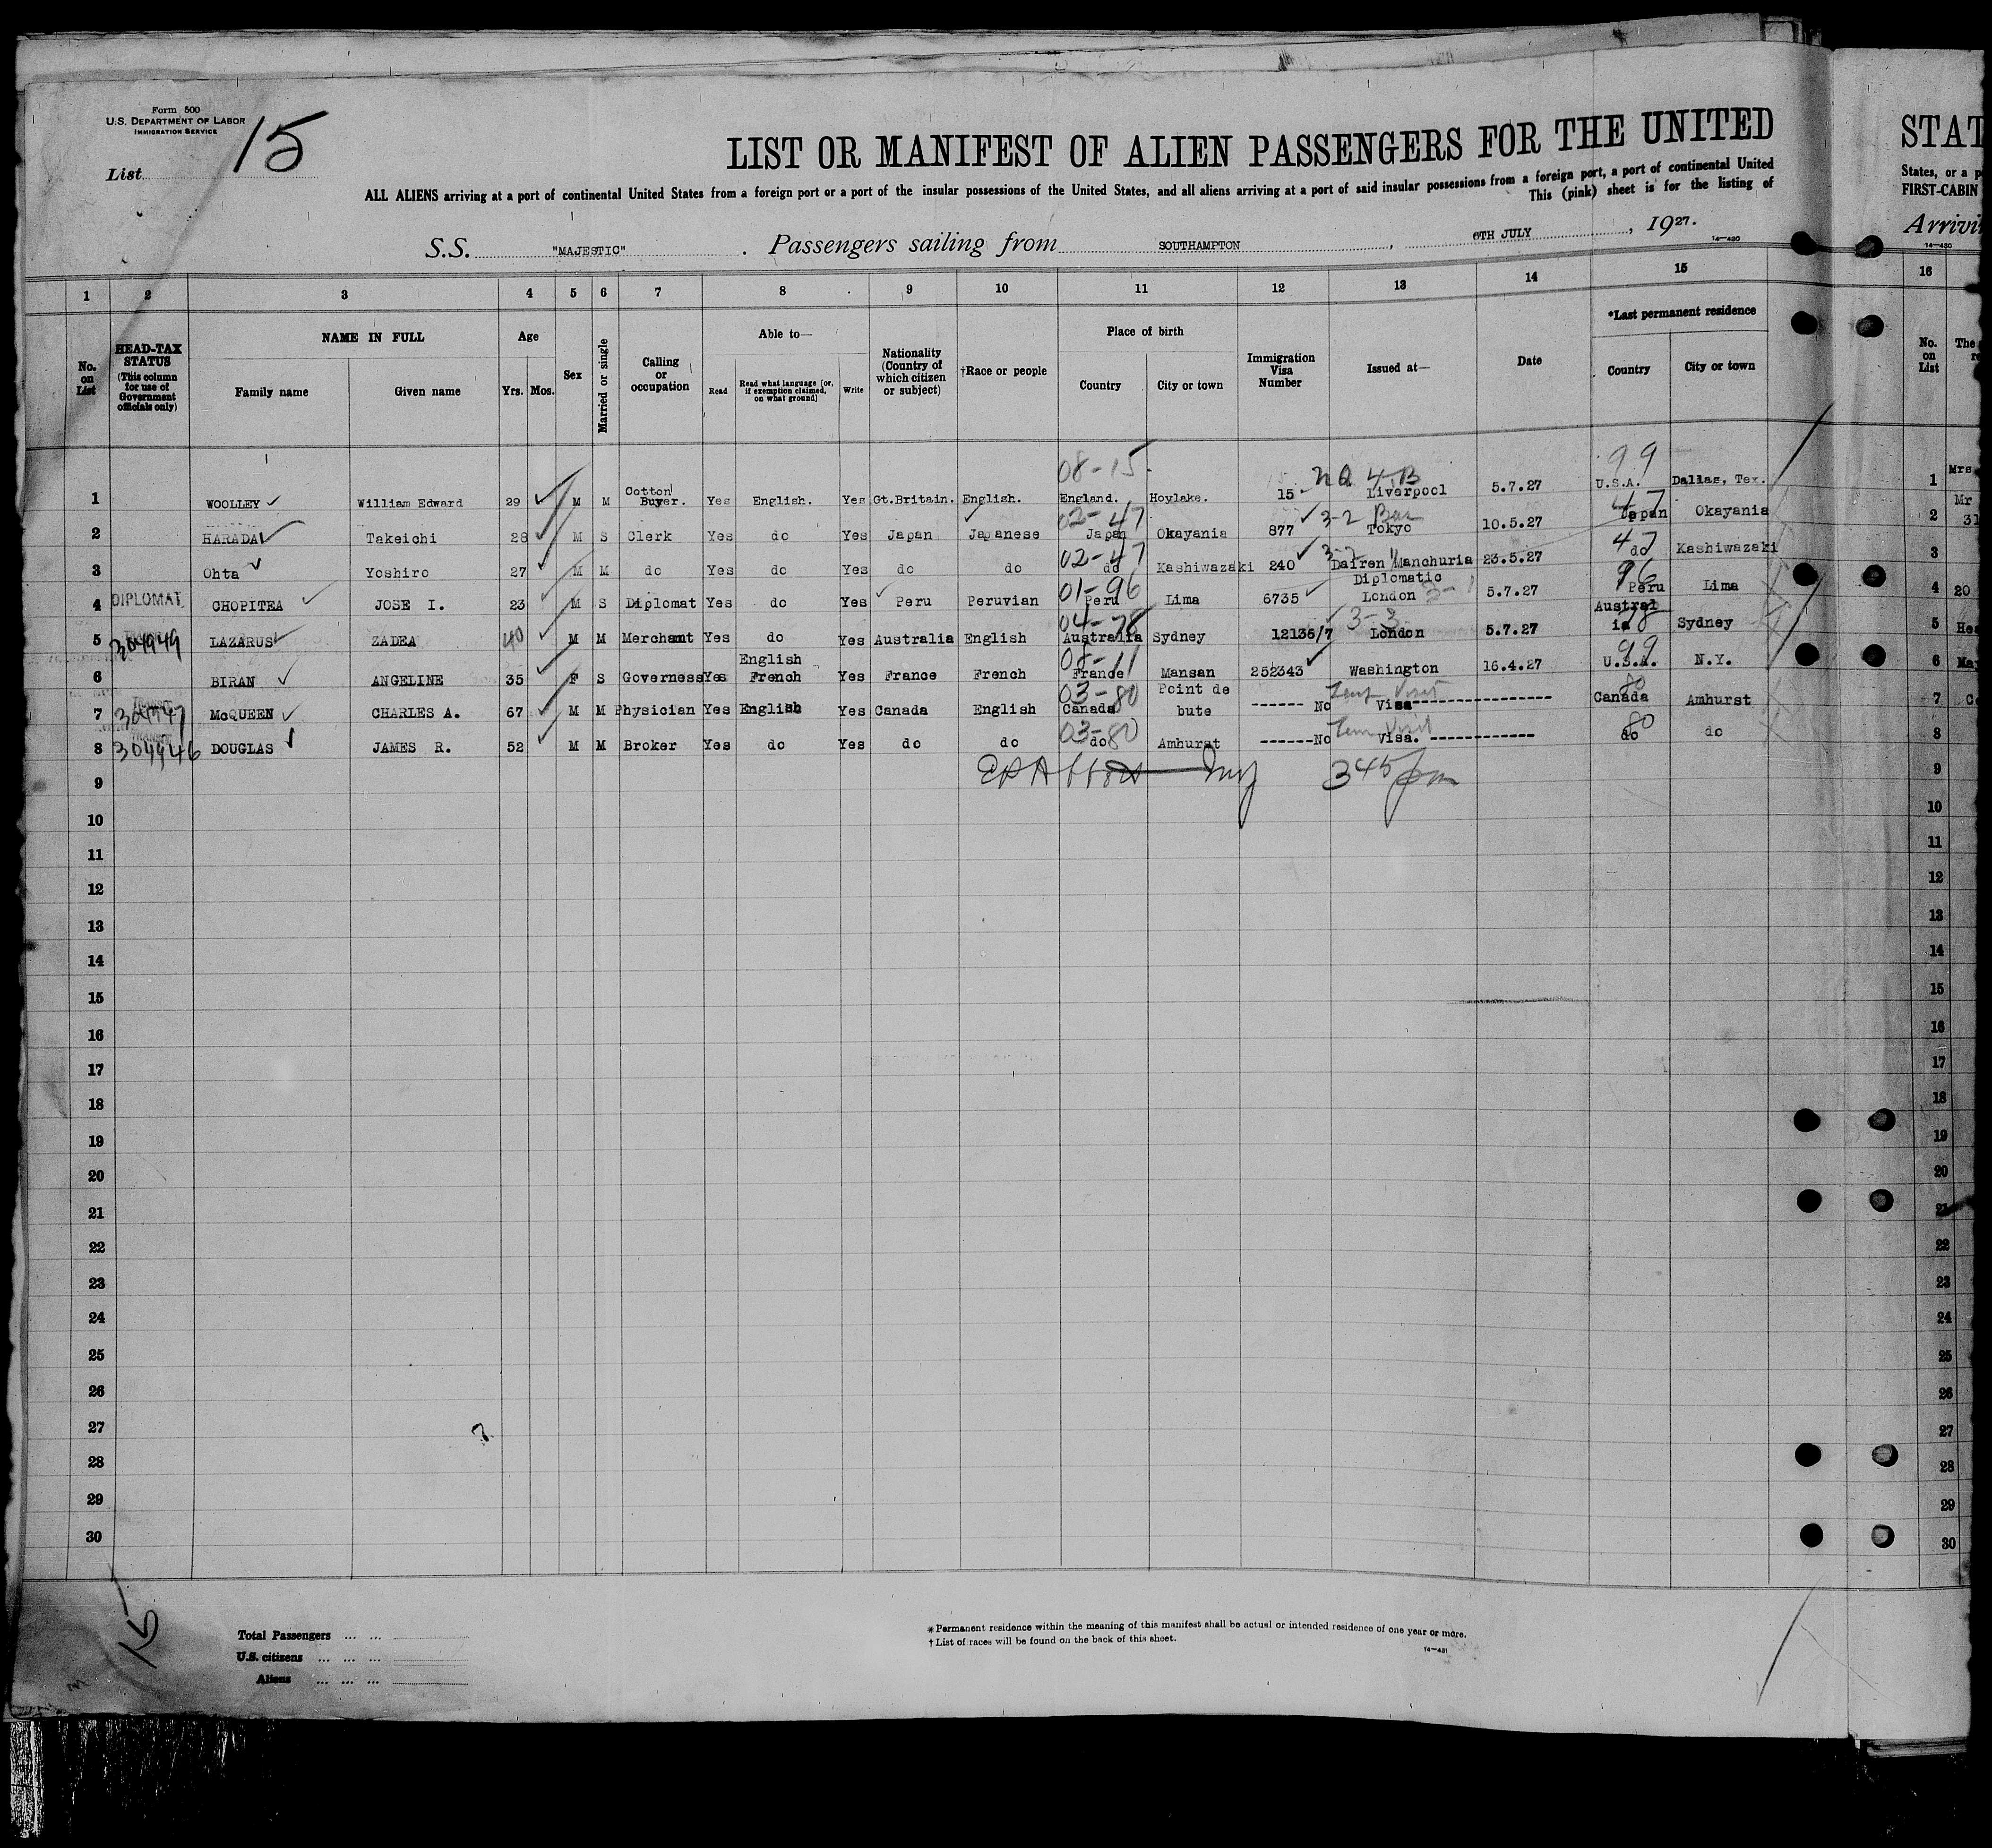 Form 500
U.S. DEPARTMENT OF LABOR
IMMIGRATION SERVICE
List 15
LIST OR MANIFEST OF ALIEN PASSENGERS FOR THE UNITED
ALL ALIENS arriving at a port of continental United States from a foreign port or a port of the insular possessions of the United States, and all aliens arriving at a port of said insular possessions from a foreign port, a port of continental United
This (pink) sheet is for the listing of
S.S. "MAJESTIC" . Passengers sailing from SOUTHAMPTON , 6TH JULY , 1927.
14-430
1 2 3 4 5 6 7 8 9 10 11 12 13 14 15
No. on List
HEAD-TAX STATUS (This column for use of Government officials only)
NAME IN FULL
Family name Given name
Age
Yrs. Mos.
Sex
Married or single
Calling or occupation
Able to—
Read Read what language [or, if exemption claimed, on what ground] Write
Nationality (Country of which citizen or subject)
†Race or people
Place of birth
Country City or town
Immigration Visa Number
Issued at—
Date
*Last permanent residence
Country City or town
08-15 na 4-B 99
1 WOOLLEY William Edward 29 M M Cotton Buyer. Yes English. Yes Gt.Britain. English. England. Hoylake. 15 Liverpool 5.7.27 U.S.A. Dallas, Tex.
02-47 3-2 47
2 HARADA Takeichi 28 M S Clerk Yes do Yes Japan Japanese Japan Okayania 877 Tokyo 10.5.27 Japan Okayania
02-47 3-2 47
3 Ohta Yoshiro 27 M M do Yes do Yes do do do Kashiwazaki 240 Dairen Manchuria 23.5.27 do Kashiwazaki
01-96 96
4 DIPLOMAT CHOPITEA JOSE I. 23 M S Diplomat Yes do Yes Peru Peruvian Peru Lima 6735 Diplomatic London 5.7.27 Peru Lima
04-78 3-3 78
5 304949 LAZARUS ZADEA 40 M M Merchant Yes do Yes Australia English Australia Sydney 12136/7 London 5.7.27 Australia Sydney
08-11 99
6 BIRAN ANGELINE 35 F S Governess Yes English French Yes France French France Mansan 252343 Washington 16.4.27 U.S.A. N.Y.
03-80 Temp Visit 80
7 304947 McQUEEN CHARLES A. 67 M M Physician Yes English Yes Canada English Canada Point de bute ------ No Visa------------- Canada Amhurst
03-80 Tem Visit 80
8 TRANSIT 304946 DOUGLAS JAMES R. 52 M M Broker Yes do Yes do do do Amhurst ------No Visa. ------------- do do
9 345 pm
10
11
12
13
14
15
16
17
18
19
20
21
22
23
24
25
26
27
28
29
30
Total Passengers ... ...
U.S. citizens ... ... ...
Aliens ... ... ...
* Permanent residence within the meaning of this manifest shall be actual or intended residence of one year or more.
† List of races will be found on the back of this sheet.
14-431
STAT
States, or a p
FIRST-CABIN
Arrivi
14-430
16
No. on List
The
1 Mrs
2 Mr 31
3
4 20
5
6
7
8
9
10
11
12
13
14
15
16
17
18
19
20
21
22
23
24
25
26
27
28
29
30